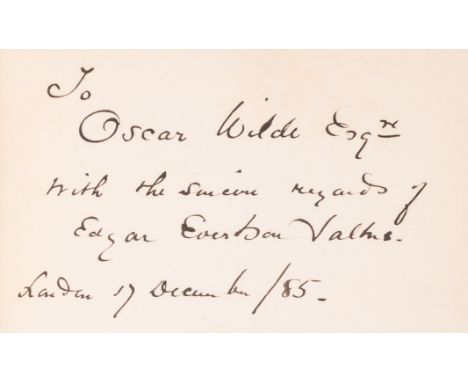 To
Oscar Wilde Esqre
With the sincere regards of
Edgar Evertson Saltus.
London 17 December/85.